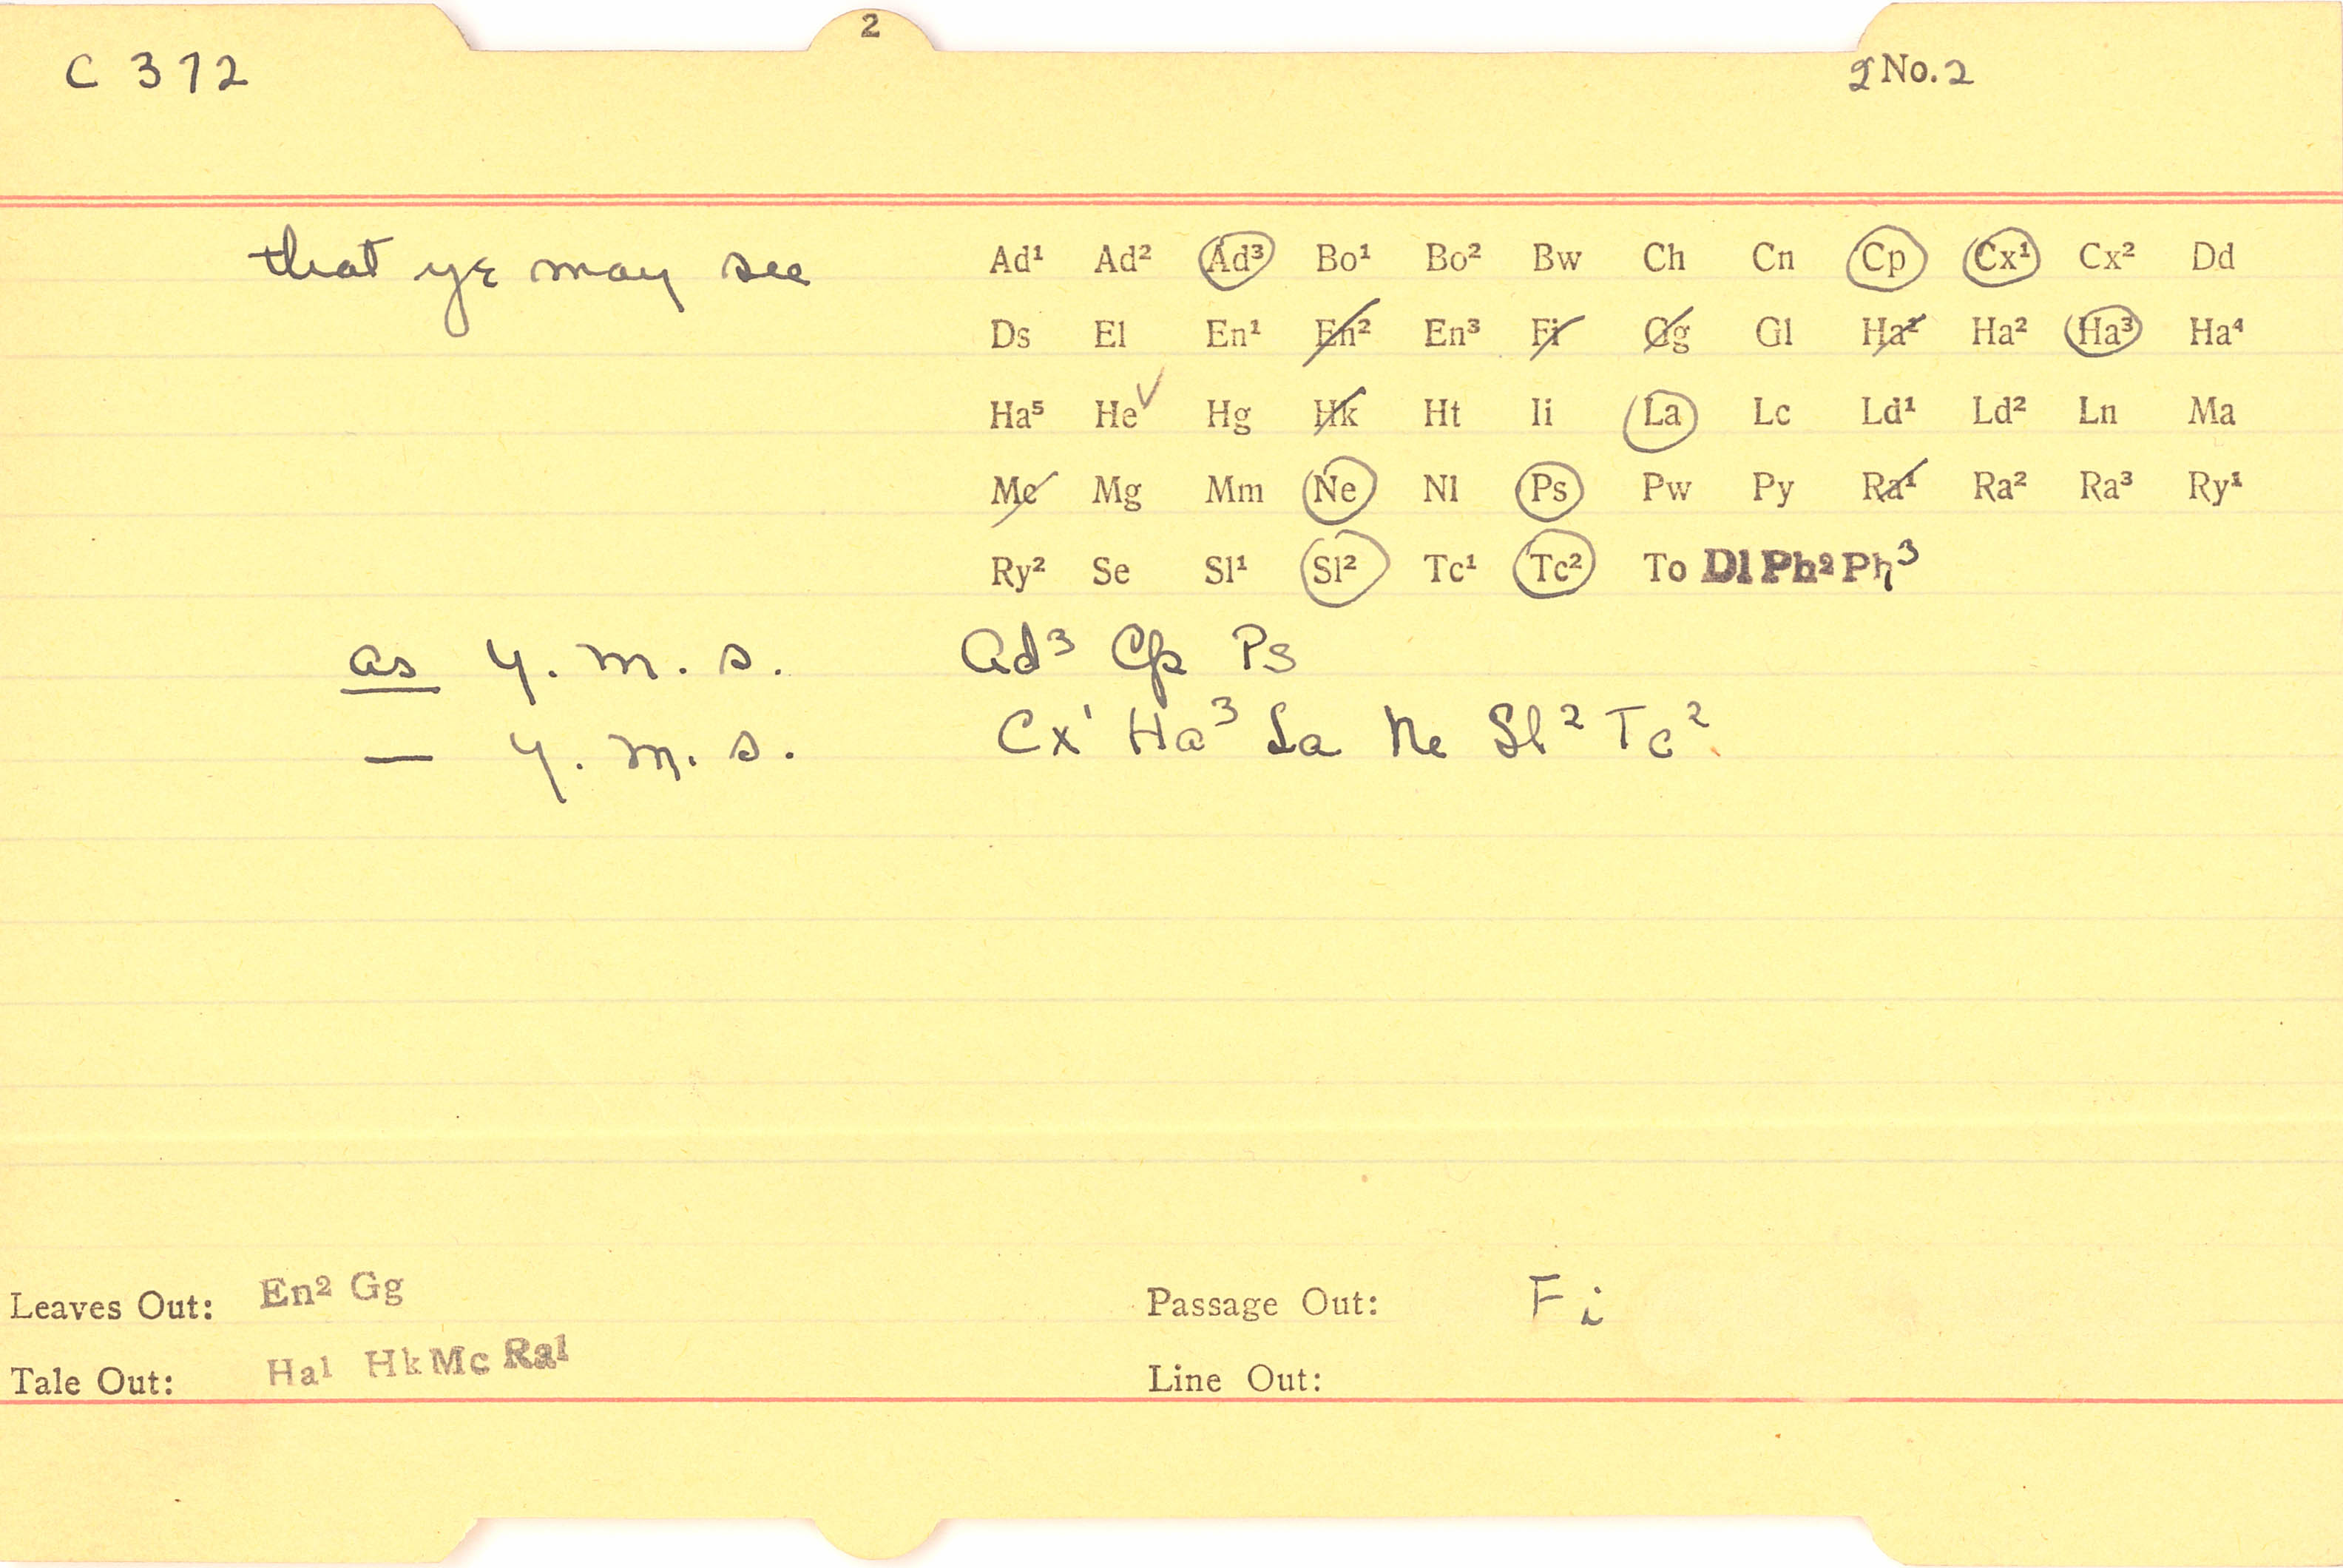 2
C 372
2 No. 2
that ye may see
Ad¹ Ad² Ad³ Bo¹ Bo² Bw Ch Cn Cp Cx¹ Cx² Dd
Ds El En¹ En² En³ Fi Gg Gl Ha¹ Ha² Ha³ Ha⁴
Ha⁵ He✓ Hg Hk Ht Ii La Lc Ld¹ Ld² Ln Ma
Mc Mg Mm Ne Nl Ps Pw Py Ra¹ Ra² Ra³ Ry¹
Ry² Se Sl¹ Sl² Tc¹ Tc² To Dl Ph² Ph³
as y. m. s. Ad³ Cp Ps
— y. m. s. Cx¹ Ha³ La Ne Sl² Tc²
Leaves Out: En² Gg
Passage Out: Fi
Tale Out: Ha¹ Hk Mc Ra¹
Line Out: